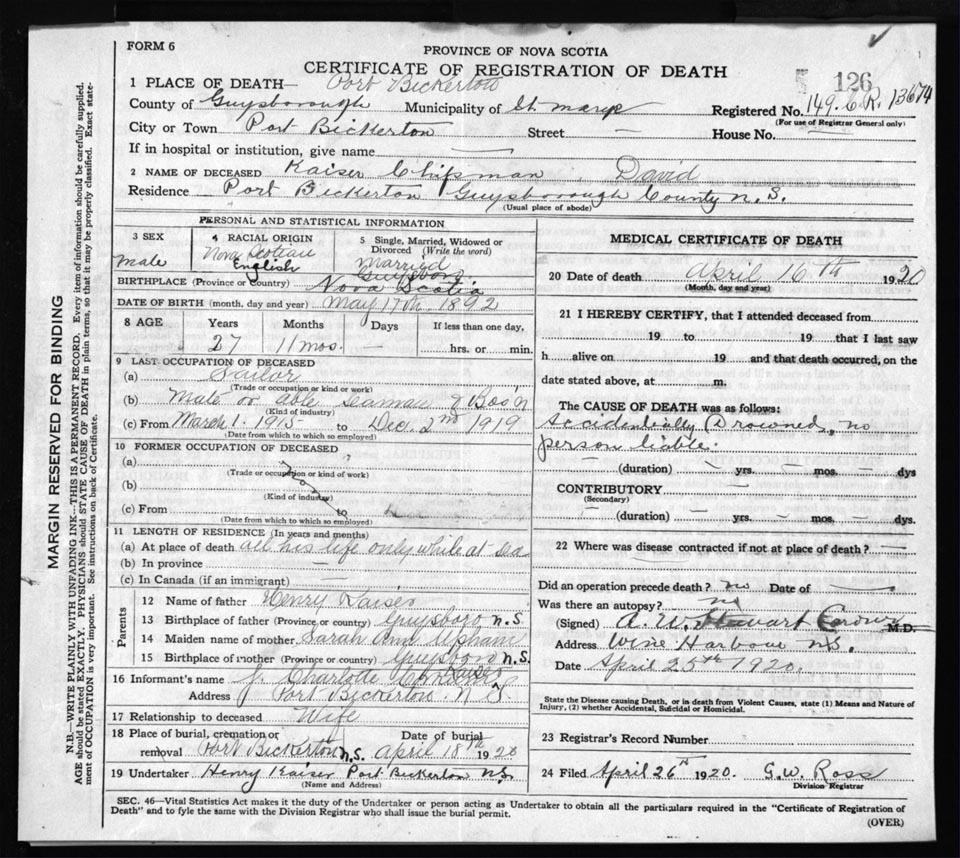 FORM 6
PROVINCE OF NOVA SCOTIA
CERTIFICATE OF REGISTRATION OF DEATH
126
1 PLACE OF DEATH— Port Bickerton
County of Guysborough Municipality of St. Marys Registered No. 149. C.R. 13674
(For use of Registrar General only)
City or Town Port Bickerton Street — House No. —
If in hospital or institution, give name —
2 NAME OF DECEASED Kaiser Chipman, David
Residence Port Bickerton Guysborough County N.S.
(Usual place of abode)
PERSONAL AND STATISTICAL INFORMATION
3 SEX
male
4 RACIAL ORIGIN
Nova Scotian
English
5 Single, Married, Widowed or
Divorced (Write the word)
Married
Guysboro
BIRTHPLACE (Province or Country) Nova Scotia
DATE OF BIRTH (month, day and year) May 17th. 1892
8 AGE Years Months Days If less than one day,
27 11 mos. — hrs. or min.
9 LAST OCCUPATION OF DECEASED
(a) Sailor
(Trade or occupation or kind of work)
(b) Mate or able Seaman & Bos'n
(Kind of industry)
(c) From March 1. 1915 to Dec. 2nd 1919
(Date from which to which so employed)
10 FORMER OCCUPATION OF DECEASED
(a)
(Trade or occupation or kind of work)
(b)
(Kind of industry)
(c) From to
(Date from which to which so employed)
11 LENGTH OF RESIDENCE (In years and months)
(a) At place of death all his life only while at Sea
(b) In province —
(c) In Canada (if an immigrant) —
Parents
12 Name of father Henry Kaiser
13 Birthplace of father (Province or country) Guysboro N.S.
14 Maiden name of mother Sarah Ann Upham
15 Birthplace of mother (Province or country) Guysboro N.S.
16 Informant's name J. Charlotte Kaiser
Address Port Bickerton N.S.
17 Relationship to deceased Wife
18 Place of burial, cremation or Date of burial
removal Port Bickerton N.S. April 18th 1920
19 Undertaker Henry Kaiser Port Bickerton N.S.
(Name and Address)
MEDICAL CERTIFICATE OF DEATH
20 Date of death April 16th 1920
(Month, day and year)
21 I HEREBY CERTIFY, that I attended deceased from
19 to 19 that I last saw
h alive on 19 and that death occurred, on the
date stated above, at m.
The CAUSE OF DEATH was as follows:
Accidentally Drowned, no
person liable.
— (duration) — yrs. — mos. — dys
CONTRIBUTORY —
(Secondary)
— (duration) — yrs. — mos. — dys.
22 Where was disease contracted if not at place of death? —
Did an operation precede death? no Date of —
Was there an autopsy? no
(Signed) A. W. Stewart M.D.
Address Wine Harbour N.S.
Date April 25th 1920.
State the Disease causing Death, or in death from Violent Causes, state (1) Means and Nature of
Injury, (2) whether Accidental, Suicidal or Homicidal.
23 Registrar's Record Number
24 Filed April 26th 1920. G.W. Ross
Division Registrar
SEC. 46—Vital Statistics Act makes it the duty of the Undertaker or person acting as Undertaker to obtain all the particulars required in the "Certificate of Registration of
Death" and to fyle the same with the Division Registrar who shall issue the burial permit.
(OVER)
MARGIN RESERVED FOR BINDING
N.B.—WRITE PLAINLY WITH UNFADING INK—THIS IS A PERMANENT RECORD. Every item of information should be carefully supplied.
AGE should be stated EXACTLY. PHYSICIANS should STATE CAUSE OF DEATH in plain terms, so that it may be properly classified. Exact state-
ment of OCCUPATION is very important. See instructions on back of Certificate.